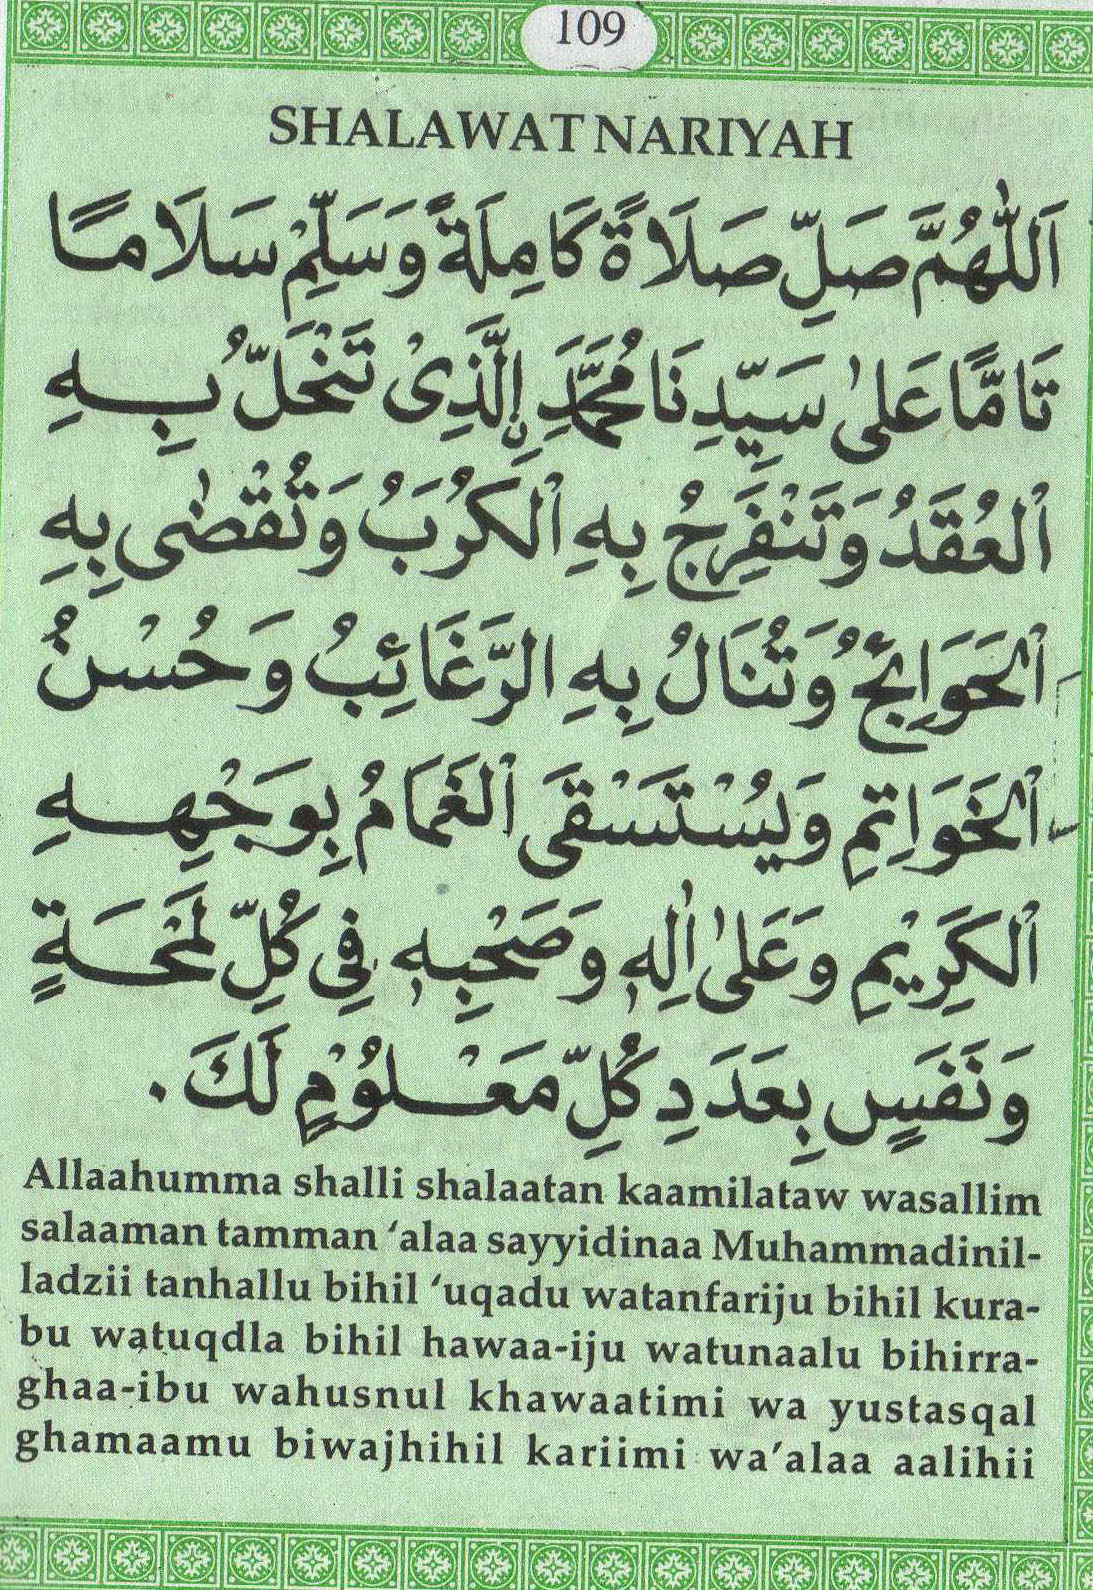 109
SHALAWAT NARIYAH
اَللّٰهُمَّ صَلِّ صَلَاةً كَامِلَةً وَسَلِّمْ سَلَامًا
تَامًّا عَلٰى سَيِّدِنَا مُحَمَّدَنِ الَّذِىْ تَنْحَلُّ بِهِ
الْعُقَدُ وَتَنْفَرِجُ بِهِ الْكُرَبُ وَتُقْضٰى بِهِ
الْحَوَائِجُ وَتُنَالُ بِهِ الرَّغَائِبُ وَحُسْنُ
الْخَوَاتِمِ وَيُسْتَسْقَى الْغَمَامُ بِوَجْهِهِ
الْكَرِيْمِ وَعَلٰى اٰلِهٖ وَصَحْبِهٖ فِى كُلِّ لَمْحَةٍ
وَنَفَسٍ بِعَدَدِ كُلِّ مَعْلُوْمٍ لَكَ.
Allaahumma shalli shalaatan kaamilataw wasallim
salaaman tamman ‘alaa sayyidinaa Muhammadinil-
ladzii tanhallu bihil ‘uqadu watanfariju bihil kura-
bu watuqdla bihil hawaa-iju watunaalu bihirra-
ghaa-ibu wahusnul khawaatimi wa yustasqal
ghamaamu biwajhihil kariimi wa’alaa aalihii